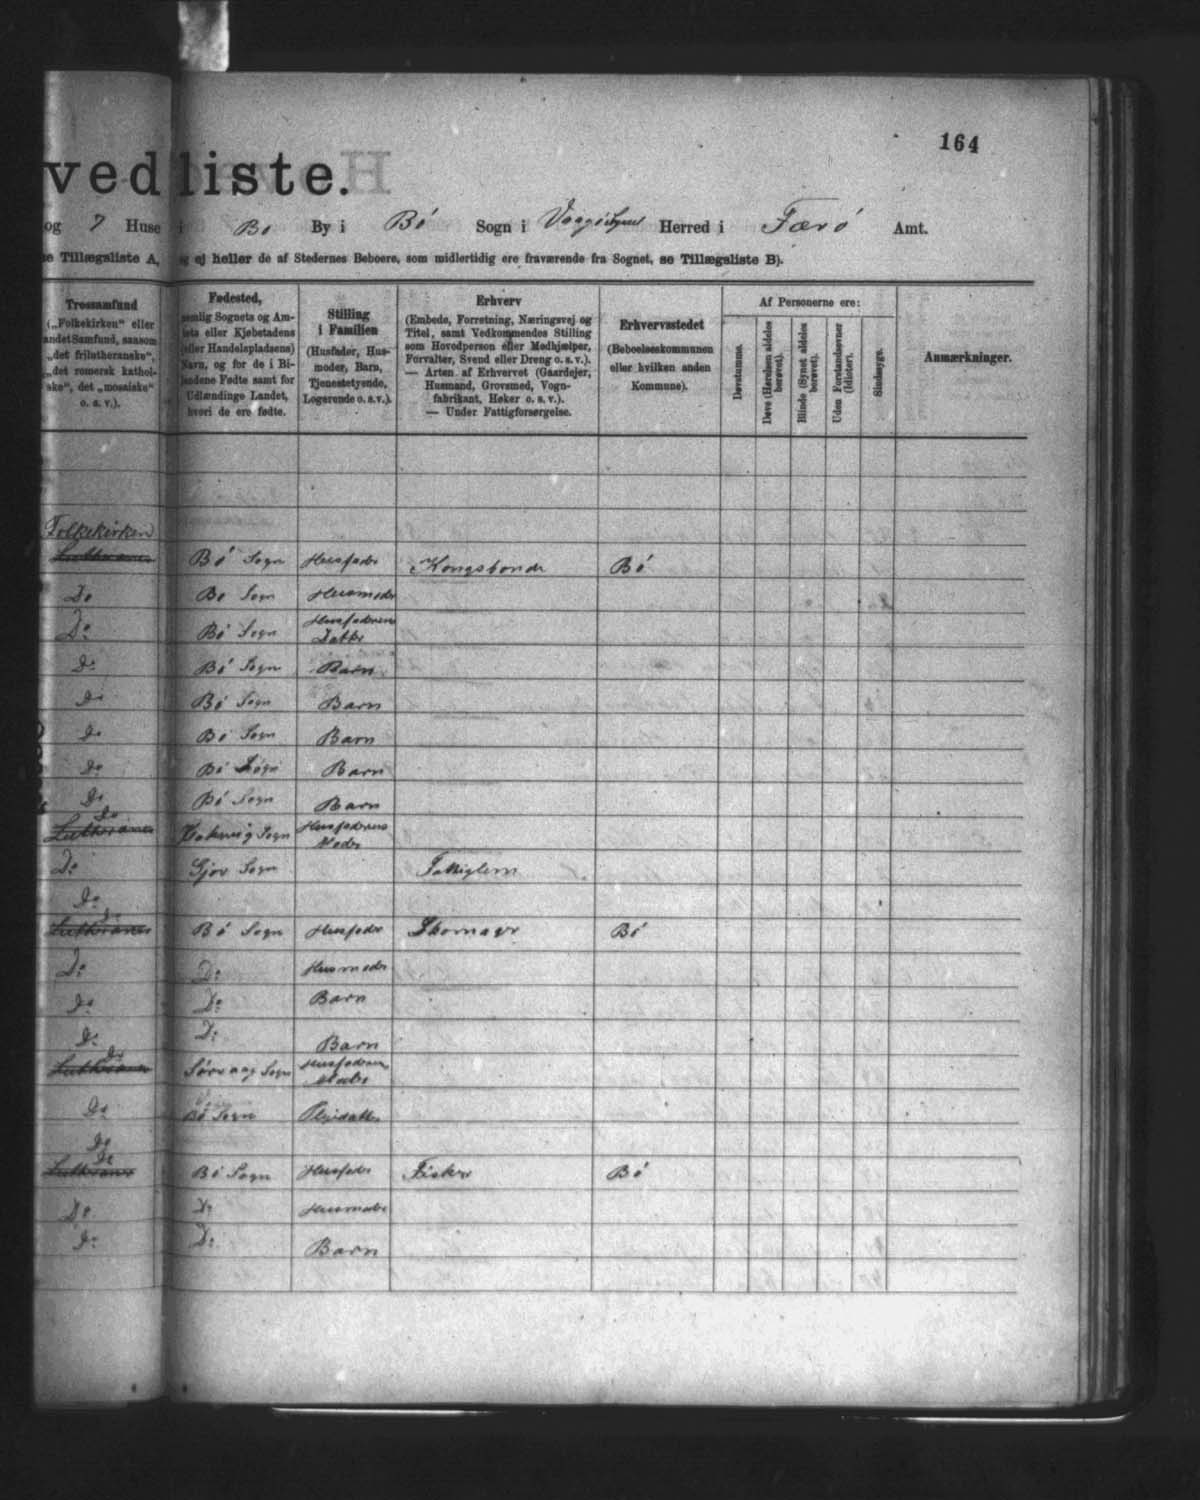 164
vedliste.
og 7 Huse i Bø By i Bø Sogn i Vaagø Syssel Herred i Færø Amt.
se Tillægsliste A, og ej heller de af Stedernes Beboere, som midlertidig ere fraværende fra Sognet, se Tillægsliste B).
Trossamfund
(„Folkekirken“ eller
andet Samfund, saasom
„det frilutheranske“,
„det romersk kathol-
ske“, det „mosaiske“
o. s. v.).
Fødested,
nemlig Sognets og Am-
tets eller Kjøbstadens
(eller Handelspladsens)
Navn, og for de i Bi-
landene Fødte samt for
Udlændinge Landet,
hvori de ere fødte.
Stilling
i Familien
(Husfader, Hus-
moder, Barn,
Tjenestetyende,
Logerende o. s. v.).
Erhverv
(Embede, Forretning, Næringsvej og
Titel, samt Vedkommendes Stilling
som Hovedperson eller Medhjælper,
Forvalter, Svend eller Dreng o. s. v.).
— Arten af Erhvervet (Gaardejer,
Husmand, Grovsmed, Vogn-
fabrikant, Høker o. s. v.).
— Under Fattigforsørgelse.
Erhvervsstedet
(Beboelseskommunen
eller hvilken anden
Kommune).
Af Personerne ere:
Døvstumme.
Døve (Hørelsen aldeles
berøvet).
Blinde (Synet aldeles
berøvet).
Uden Forstandsevner
(Idioter).
Sindssyge.
Anmærkninger.
Folkekirken
Lutheraner Bø Sogn Husfader Kongsbonde Bø
Do Bø Sogn Husmoder
Do Bø Sogn Husfaderens
Datter
Do Bø Sogn Barn
Do Bø Sogn Barn
Do Bø Sogn Barn
Do Bø Sogn Barn
Do Bø Sogn Barn
Do
Lutheraner Sogn Husfaderens
Moder
Do Gjov Sogn Fattiglem
Do
Do
Lutheraner Bø Sogn Husfader Skomager Bø
Do Do Husmoder
Do Do Barn
Do Do Barn
Do
Lutheraner Sørvaag Sogn Husfaderens
Moder
Do Bø Sogn Plejedatter
Do
Do
Lutheraner Bø Sogn Husfader Fisker Bø
Do Do Husmoder
Do Do Barn